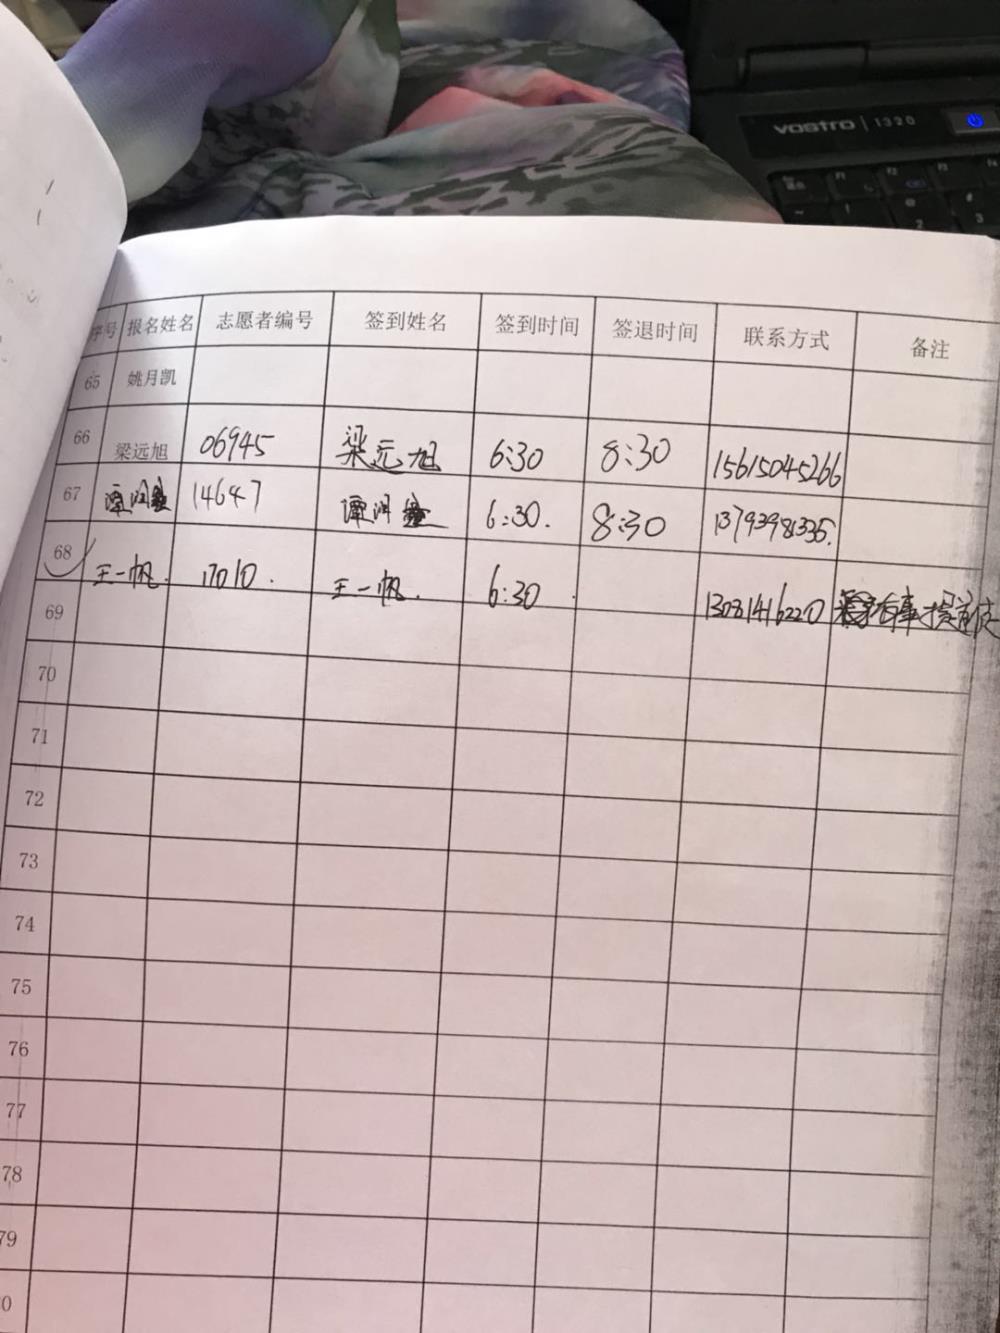 vostro 1320
序号 报名姓名 志愿者编号 签到姓名 签到时间 签退时间 联系方式 备注
65 姚月凯
66 梁远旭 06945 梁远旭 6:30 8:30 15615045266
67 谭润鑫 14647 谭润鑫 6:30. 8:30 13793981335.
68 王一帆. 17010. 王一帆. 6:30 13081416220 有事提前
69
70
71
72
73
74
75
76
77
78
79